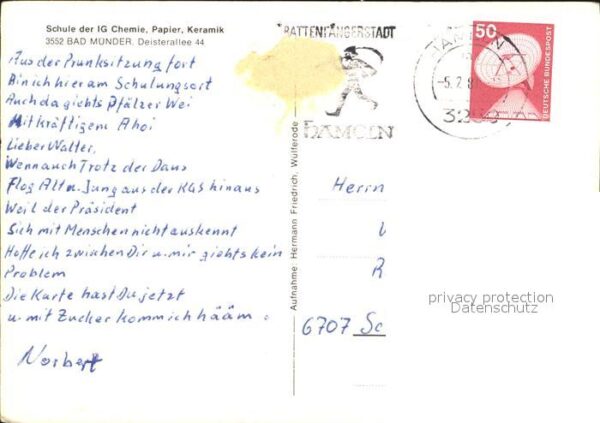 Schule der IG Chemie, Papier, Keramik
3552 BAD MÜNDER, Deisterallee 44
Aus der Prunksitzung fort
Bin ich hier am Schulungsort
Auch da giebts Pfälzer Wei
Mit kräftigem Ahoi
Lieber Walter,
Wenn auch Trotz der Daus
Flog Alt u. Jung aus der KGS hinaus
Weil der Präsident
Sich mit Menschen nicht auskennt
Hoffe ich zwischen Dir u. mir giebts kein
Problem
Die Karte hast Du jetzt
u. mit Zucker komm ich hääm.
Norbert
Aufnahme: Hermann Friedrich, Wülferode
RATTENFÄNGERSTADT
HAMELN
HAMELN
-5.2.8
50
DEUTSCHE BUNDESPOST
Herrn
R
6707 Sc
privacy protection
Datenschutz